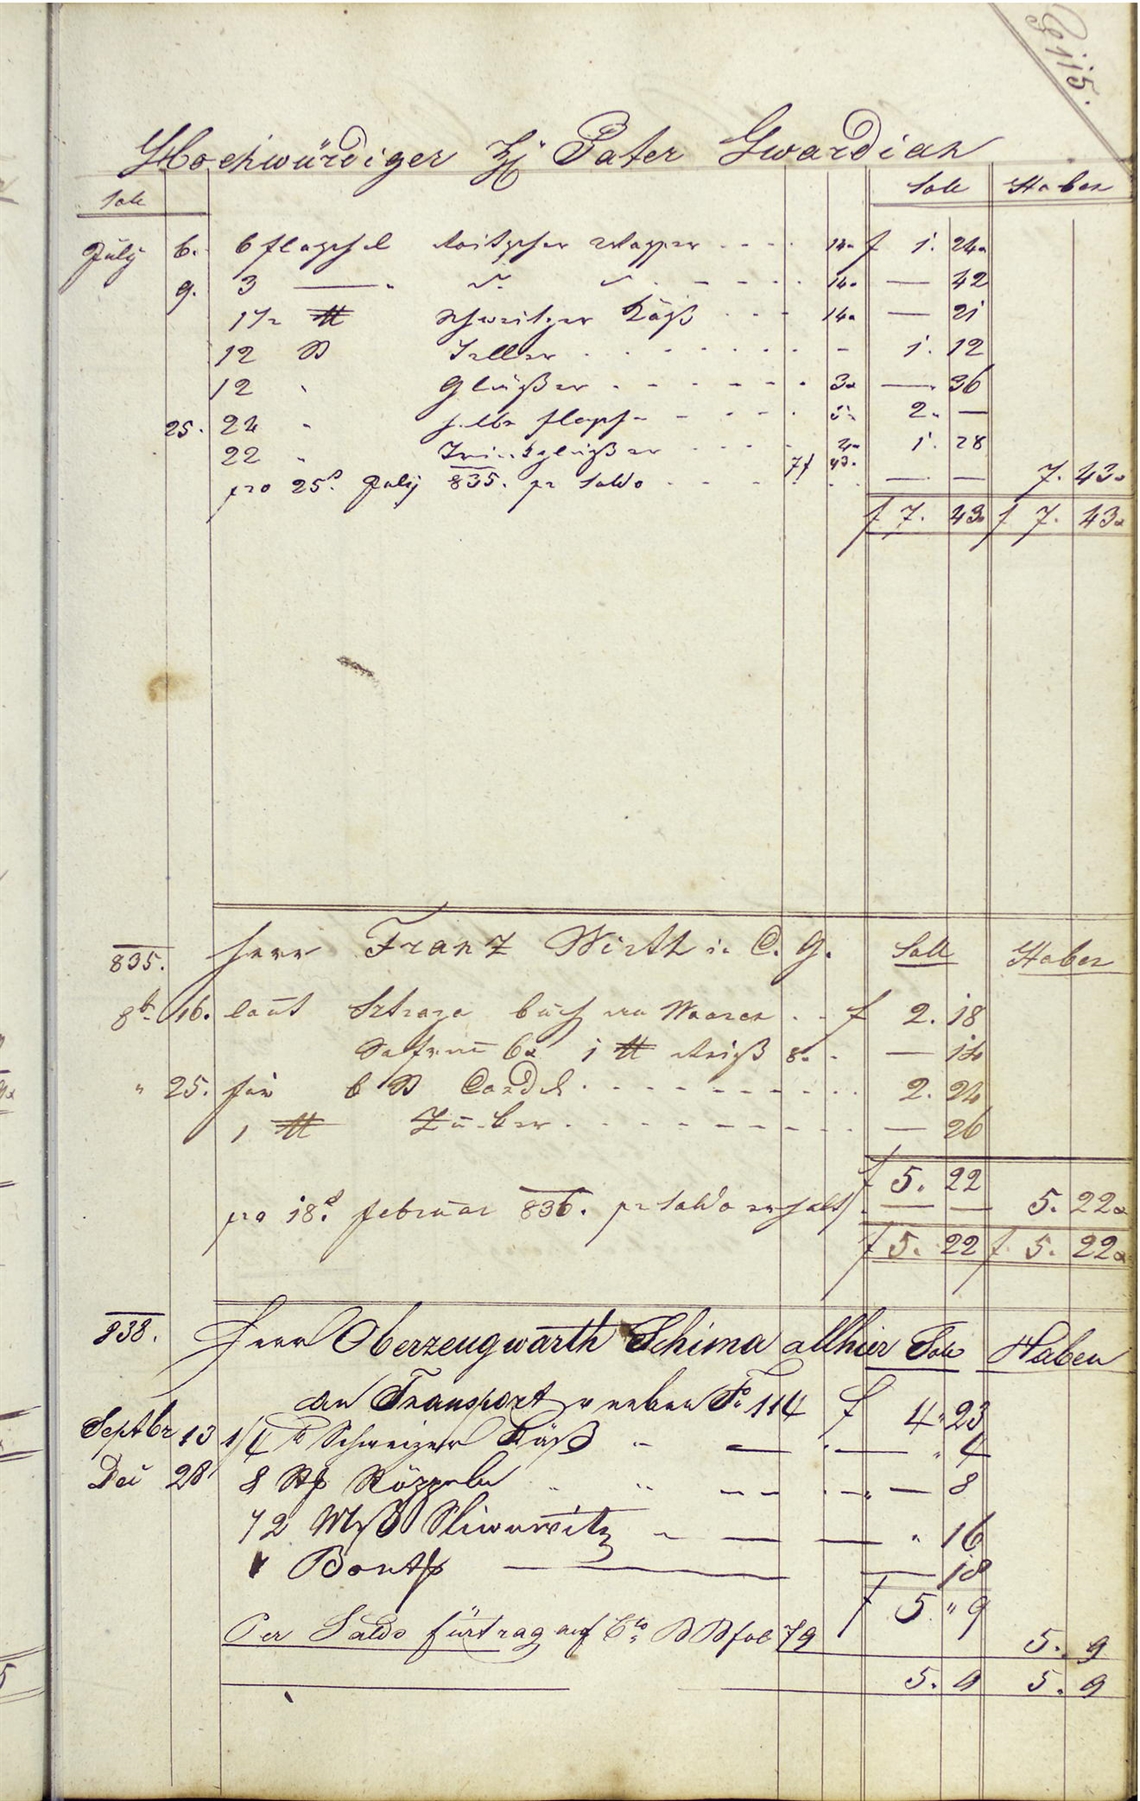 115.
Hochwürdiger H Pater Gwardian
Soll Soll Haben
July 6. 6 flaschel Roitscher Wasser 14 f 1. 24
9. 3 — " " 14 — 42
1½ ℔ Schweitzer Käß 14 — 21
12 St Teller - 1. 12
12 " Gläßer 3 — 36
25. 24 " halbe flasch 5 2. —
22 " Trinkgläßer 4 1. 28
pro 25t July 835. pr Saldo 7f 43 — — 7. 43
f 7. 43 f 7. 43
835. Herr Franz Wirth in C. G. Soll Haben
8br 16. laut Strazza buch an Waaren f 2. 18
6 1 ℔ Reiß 8 — 14
" 25. für 6 St Cordel 2. 24
1 ℔ Zucker — 26
f 5. 22
pro 18t februar 836. pr Saldo erhalt — — 5. 22
f 5. 22 f 5. 22
838. Herr Oberzeugwarth Schima allhier Soll Haben
an Transport v neben Fo 114 f 4 " 23
Septbr 13 1/4 ℔ Schweizer Käß " — " — " 4
Dei 28 8 St — " — 8
½ Mß Sliwowitz " — — " 16
1 — — 18
f 5 " 9
Per Saldo fürtrag auf Cto B B fol 79 5. 9
5. 9 5. 9